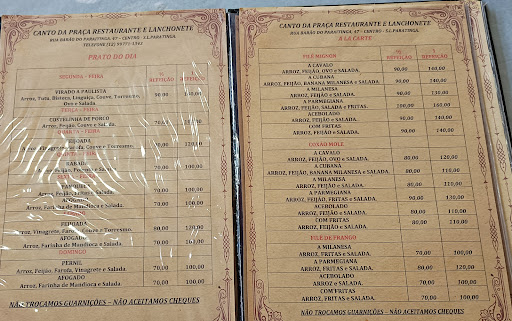 CANTO DA PRAÇA RESTAURANTE E LANCHONETE
RUA BARÃO DO PARATINGA, 47 - CENTRO - S.L.PARATINGA.
PRATO DO DIA
SEGUNDA - FEIRA
REFEIÇÃO
VIRADO A PAULISTA
Arroz, Tutu, Bisteca, Linguiça, Couve, Torresmo,
Ovo e Salada.
TERÇA - FEIRA
COSTELINHA DE PORCO
Arroz, Feijão, Couve e Salada.
QUARTA - FEIRA
FEIJOADA
Arroz, Vinagrete, Farofa, Couve e Torresmo.
80,00 120,00
Arroz, Feijão, e Salada.
70,00 100,00
Arroz, Feijão, e Salada.
70,00 100,00
AFOGADO
Arroz, Farinha de Mandioca e Salada
70,00 100,00
FEIJOADA
Arroz, Vinagrete, Farofa, Couve e Torresmo.
80,00 120,00
AFOGADO
Arroz, Farinha de Mandioca e Salada
70,00
DOMINGO
PERNIL
Arroz, Feijão, Farofa, Vinagrete e Salada
70,00 100,00
AFOGADO
Arroz, Farinha de Mandioca e Salada
70,00 100,00
NÃO TROCAMOS GUARNIÇÕES – NÃO ACEITAMOS CHEQUES
CANTO DA PRAÇA RESTAURANTE E LANCHONETE
RUA BARÃO DO PARATINGA, 47 - CENTRO - S.L.PARATINGA.
A LA CARTE
FILÉ MIGNON
REFEIÇÃO REFEIÇÃO
A CAVALO
ARROZ, FEIJÃO, OVO e SALADA.
90,00 140,00
A CUBANA
ARROZ, FEIJÃO, BANANA MILANESA e SALADA
90,00 140,00
A MILANESA
ARROZ, FEIJÃO e SALADA.
90,00 130,00
A PARMEGIANA
ARROZ, FEIJÃO, SALADA, FRITAS.
100,00 160,00
ACEBOLADO
ARROZ, FEIJÃO e SALADA.
90,00 140,00
COM FRITAS
ARROZ, FEIJÃO e SALADA.
90,00 140,00
COXÃO MOLE
A CAVALO
ARROZ, FEIJÃO, OVO e SALADA.
80,00 120,00
A CUBANA
ARROZ, FEIJÃO, BANANA MILANESA e SALADA.
80,00 110,00
A MILANESA
ARROZ, FEIJÃO e SALADA.
80,00 110,00
A PARMEGIANA
ARROZ, FEIJÃO, FRITAS e SALADA.
90,00 130,00
ACEBOLADO
ARROZ, FEIJÃO e SALADA.
80,00 110,00
COM FRITAS
ARROZ, FEIJÃO e SALADA.
80,00 110,00
FILÉ DE FRANGO
A MILANESA
ARROZ, FRITAS e SALADA.
70,00 100,00
A PARMEGIANA
ARROZ, FRITAS e SALADA.
80,00 120,00
ACEBOLADO
ARROZ, FEIJÃO e SALADA.
70,00 100,00
COM FRITAS
ARROZ, FEIJÃO e SALADA.
70,00 100,00
NÃO TROCAMOS GUARNIÇÕES – NÃO ACEITAMOS CHEQUES